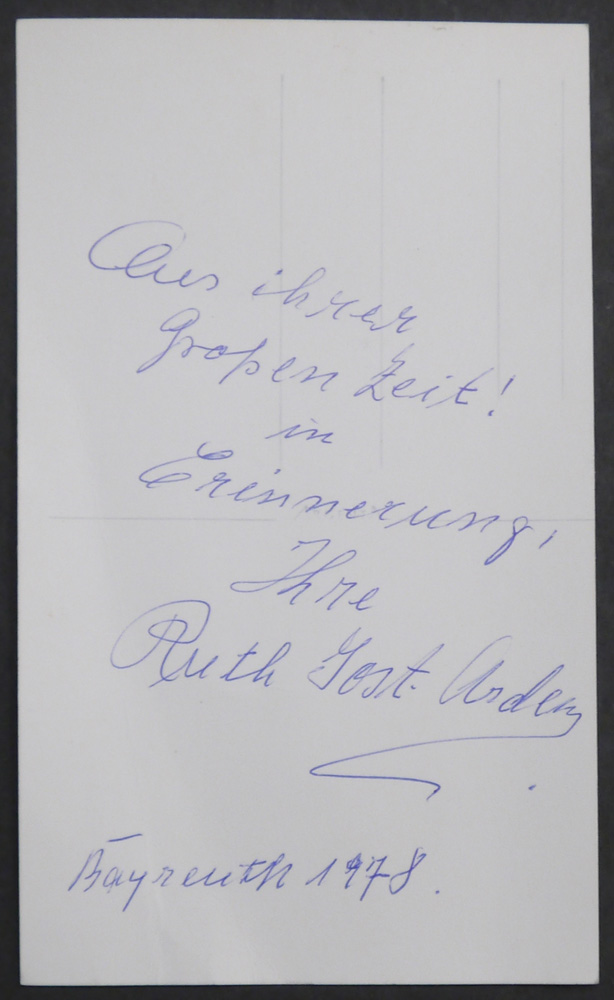 Aus ihrer
Großen Zeit!
in
Erinnerung,
Ihre
Ruth Jost-Arden
Bayreuth 1978.